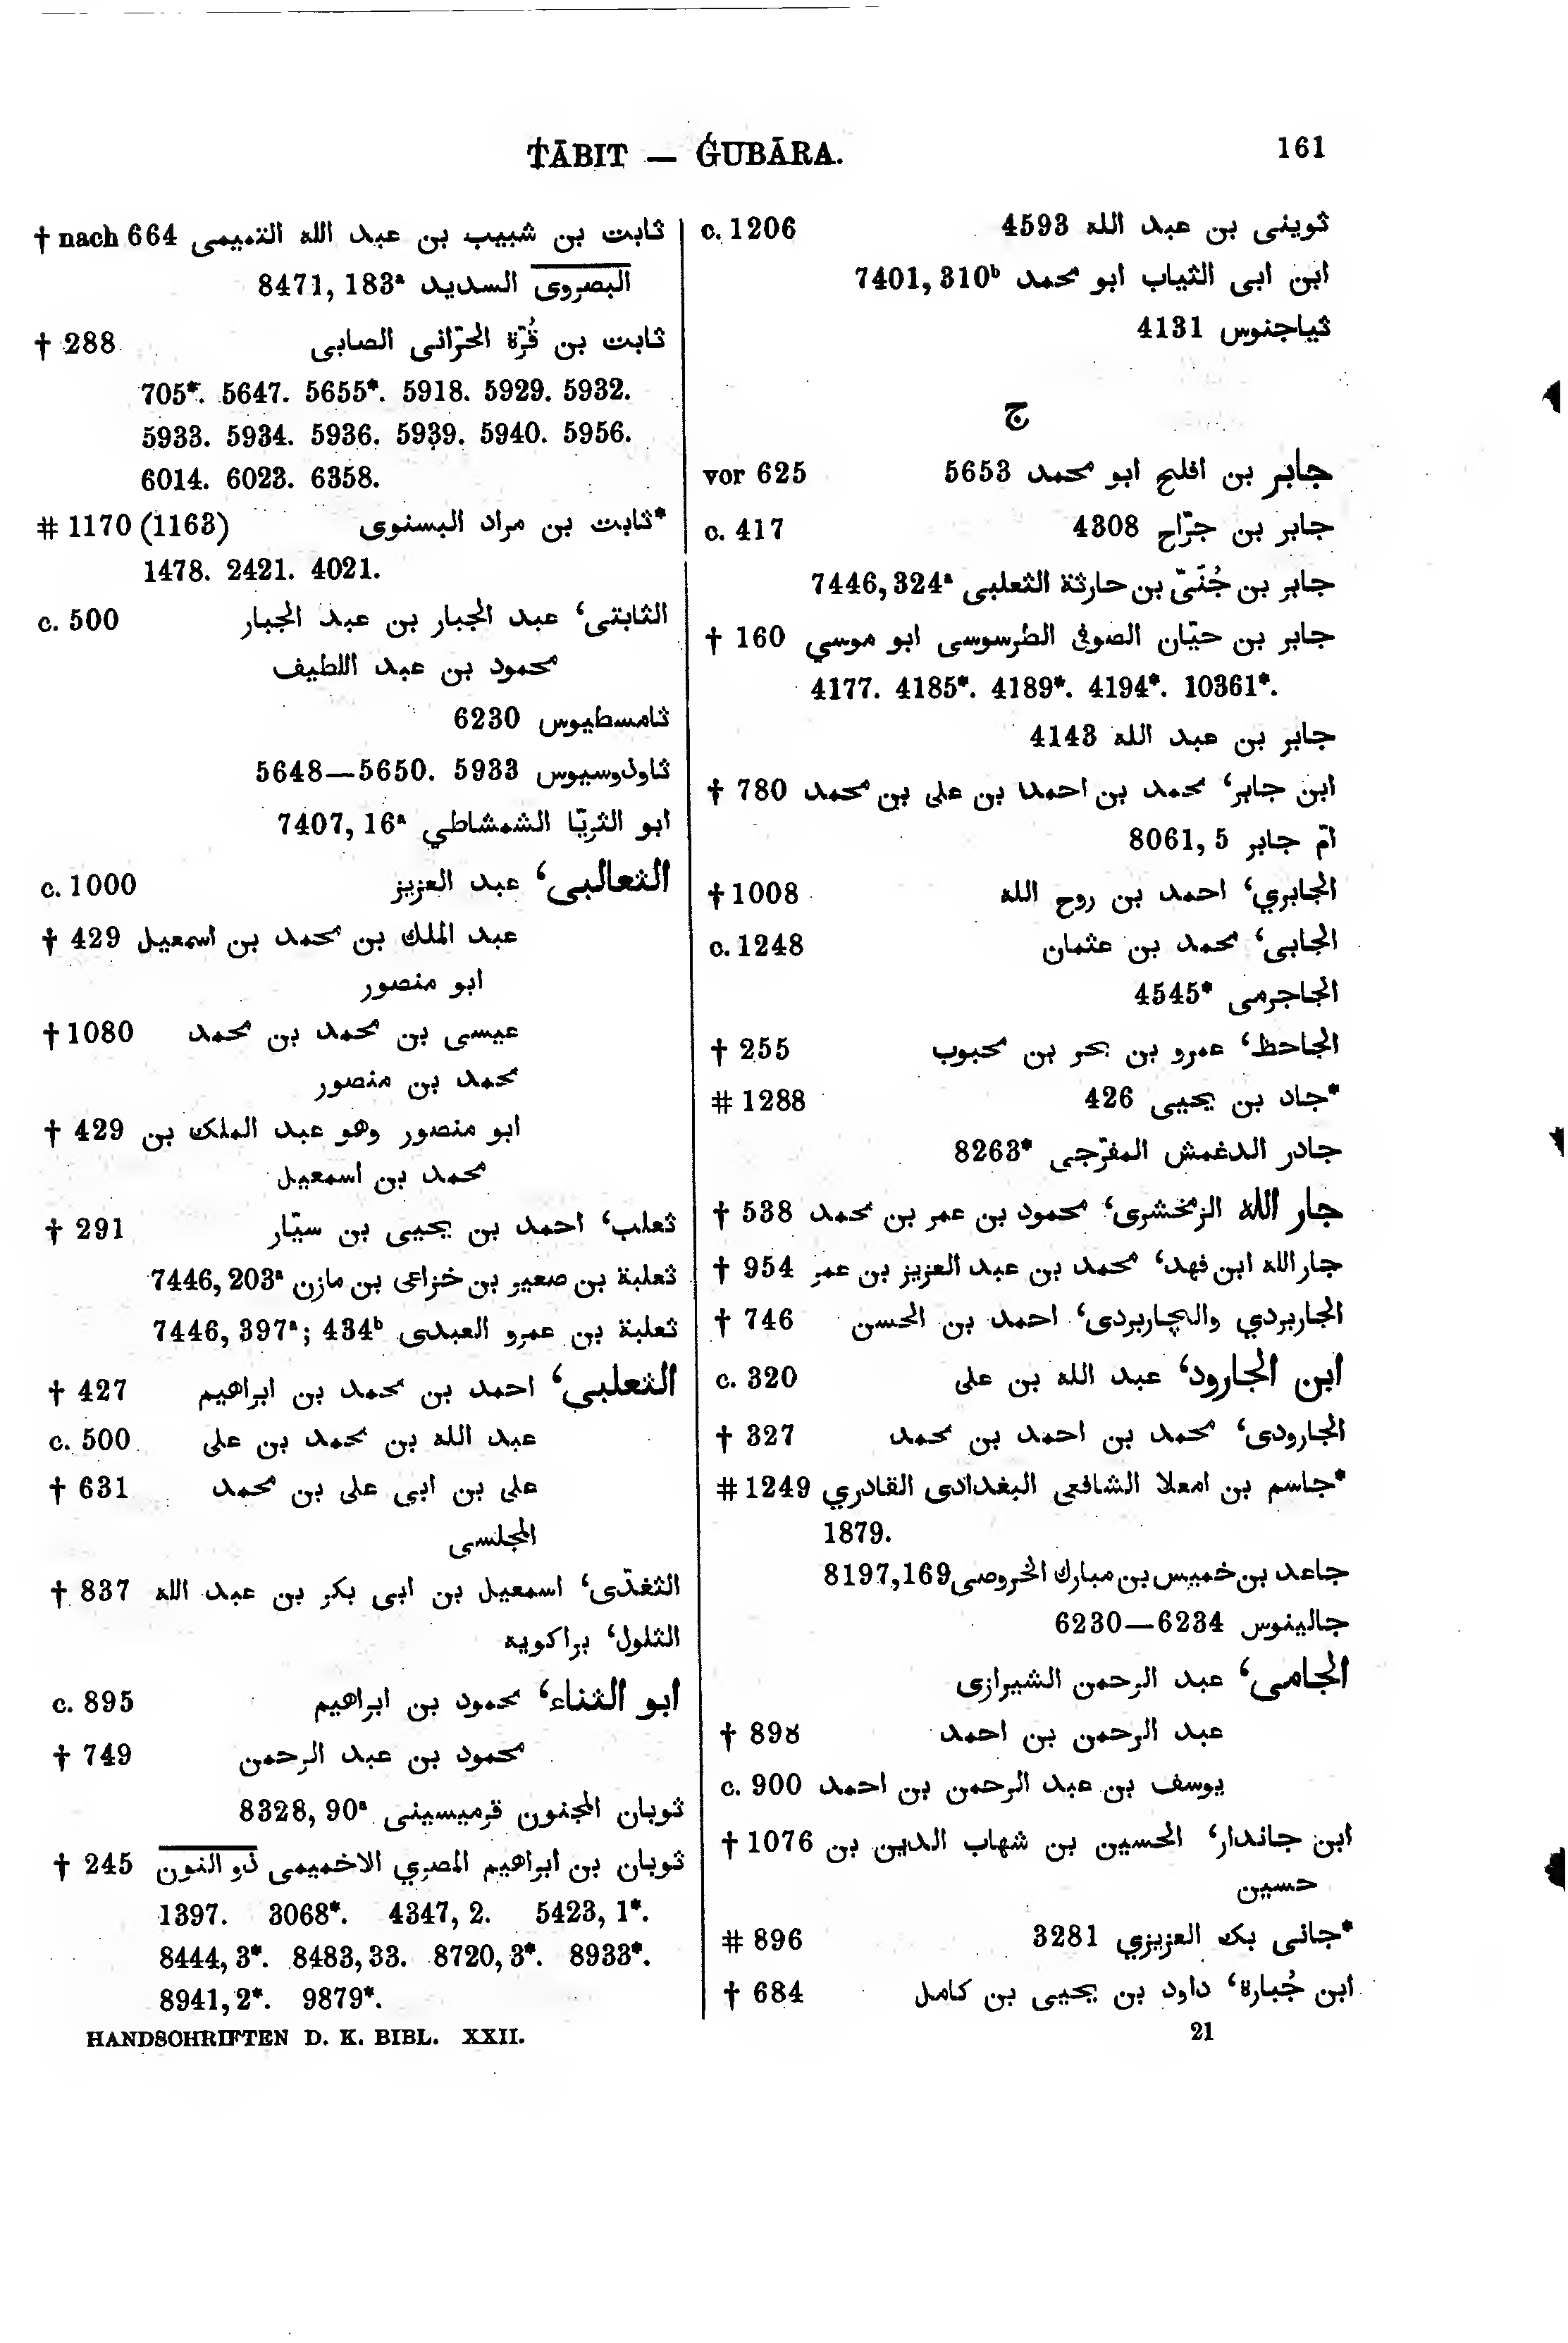 ṪĀBIT — ǴUBĀRA. 161
ثابت بن شبيب بن عبد الله التميمى † nach 664
البصروى السديد 8471, 183ᵃ
ثابت بن قُرّة الحرّانى الصابى † 288
705*. 5647. 5655*. 5918. 5929. 5932.
5933. 5934. 5936. 5939. 5940. 5956.
6014. 6023. 6358.
*ثابت بن مراد البسنوى # 1170 (1163)
1478. 2421. 4021.
الثابتى، عبد الجبار بن عبد الجبار c. 500
محمود بن عبد اللطيف
ثامسطيوس 6230
ثاوذوسيوس 5648—5650. 5933
ابو الثريّا الشمشاطي 7407, 16ᵃ
الثعالبى، عبد العزيز c. 1000
عبد الملك بن محمد بن اسمعيل † 429
ابو منصور
عيسى بن محمد بن محمد † 1080
محمد بن منصور
ابو منصور وهو عبد الملك بن † 429
محمد بن اسمعيل
ثعلب، احمد بن يحيى بن سيّار † 291
ثعلبة بن صعير بن خزاعى بن مازن 7446, 203ᵃ
ثعلبة بن عمرو العبدى 7446, 397ᵃ; 434ᵇ
الثعلبى، احمد بن محمد بن ابراهيم † 427
عبد الله بن محمد بن على c. 500
على بن ابى على بن محمد † 631
المجلسى
الثغدّى، اسمعيل بن ابى بكر بن عبد الله † 837
الثلول، براكويه
ابو الثناء، محمود بن ابراهيم c. 895
محمود بن عبد الرحمن † 749
ثوبان المجنون قرميسينى 8328, 90ᵃ
ثوبان بن ابراهيم المصري الاخميمى ذو النون † 245
1397. 3068*. 4347, 2. 5423, 1*.
8444, 3*. 8483, 33. 8720, 3*. 8933*.
8941, 2*. 9879*.
ثوينى بن عبد الله 4593 c. 1206
ابن ابى الثياب ابو محمد 7401, 310ᵇ
ثياجنوس 4131
ج
جابر بن افلح ابو محمد 5653 vor 625
جابر بن جرّاح 4308 c. 417
جابر بن حُنَىّ بن حارثة الثعلبى 7446, 324ᵃ
جابر بن حيّان الصوفى الطرسوسى ابو موسي † 160
4177. 4185*. 4189*. 4194*. 10361*.
جابر بن عبد الله 4143
ابن جابر، محمد بن احمد بن على بن محمد † 780
امّ جابر 8061, 5
الجابري، احمد بن روح الله † 1008
الجابى، محمد بن عثمان c. 1248
الجاجرمى 4545*
الجاحظ، عمرو بن بحر بن محبوب † 255
*جاد بن يحيى 426 # 1288
جادر الدغمش المفرّجى 8263*
جار الله الزمخشرى، محمود بن عمر بن محمد † 538
جار الله ابن فهد، محمد بن عبد العزيز بن عمر † 954
الجاربردي والچاربردى، احمد بن الحسن † 746
ابن الجارود، عبد الله بن على c. 320
الجارودى، محمد بن احمد بن محمد † 327
*جاسم بن امعلا الشافعى البغدادى القادري # 1249
1879.
جاعد بن خميس بن مبارك الخروصى 8197, 169
جالينوس 6230—6234
الجامى، عبد الرحمن الشيرازى
عبد الرحمن بن احمد † 898
يوسف بن عبد الرحمن بن احمد c. 900
ابن جاندار، الحسين بن شهاب الدين بن † 1076
حسين
*جانى بك العزيزي 3281 # 896
ابن جُبارة، داود بن يحيى بن كامل † 684
HANDSCHRIFTEN D. K. BIBL. XXII. 21